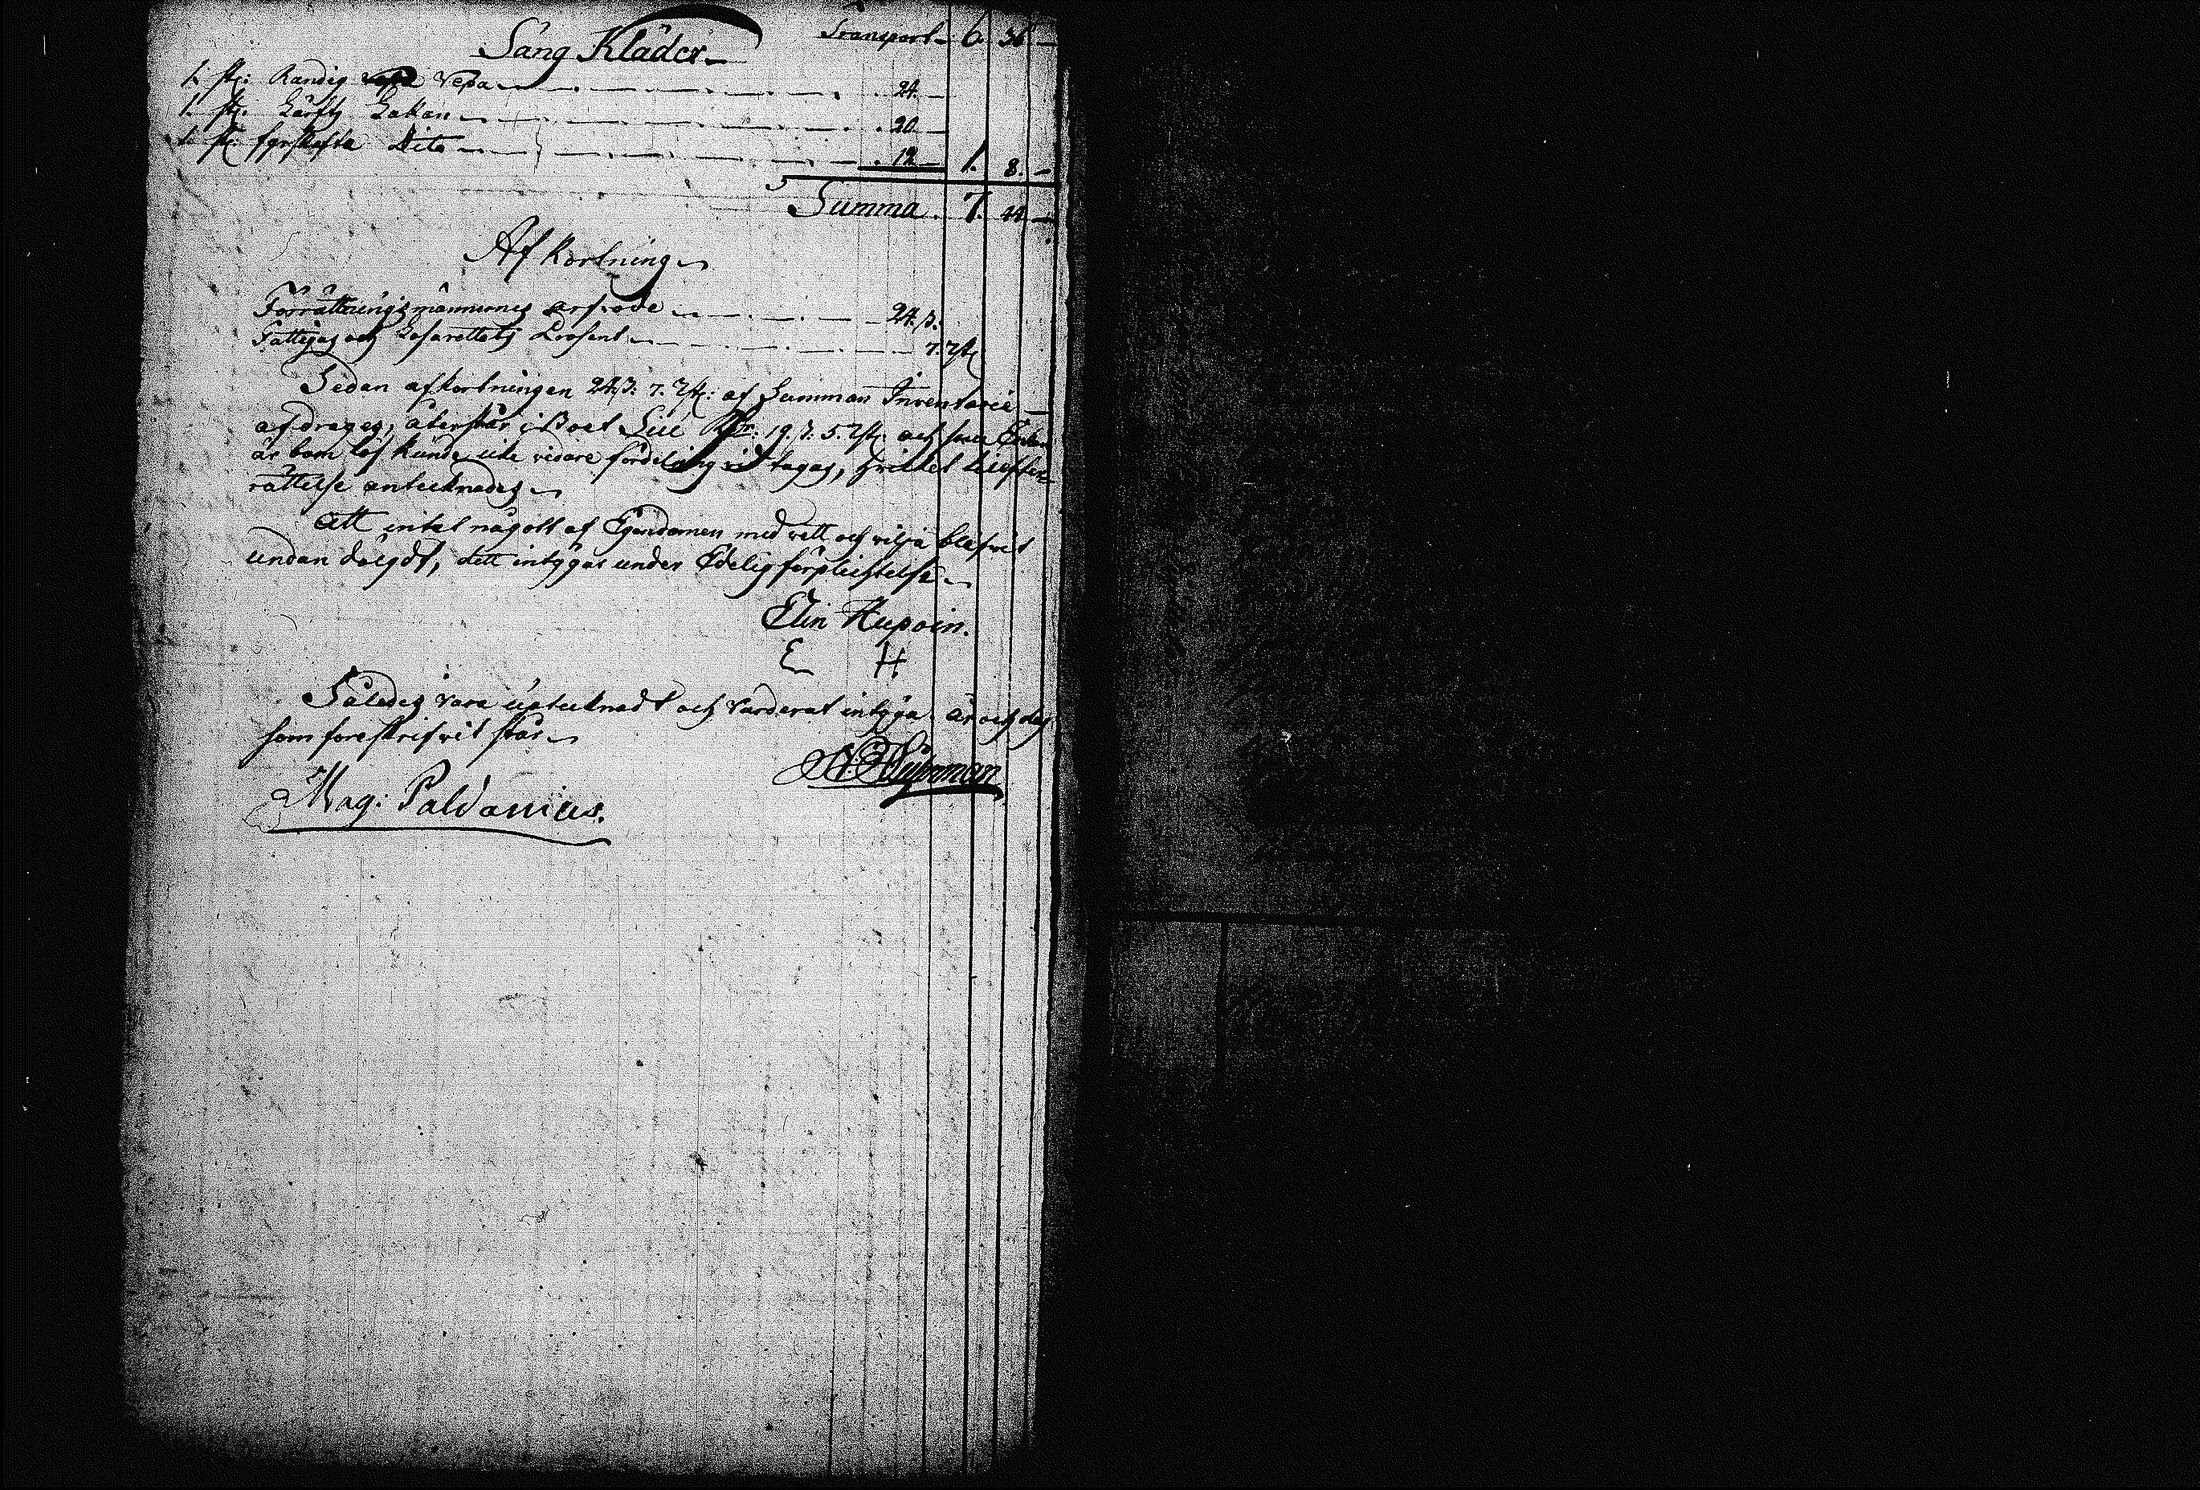 Transport 6. 36 —
Säng Kläder
1. st: Randig Vepa 24. —
1. st: Lärfts Lakan 20. —
1. st: fyrskafta Dito 12 — 1. 8. —
Summa. 7. 44 —
Af kortning
Förrättningsmännernes arfvode 24. ß.
Fattigas och Lasarettets Prosent 7. rst
Sedan afkortningen 24 ß: 7. rst: af Summan Inventarie
afdrages, återstår i Boet Sju Rdr: 19. ß. 5. rst. och som Enkan
är barnlös kunde icke vidare fördelning vid tagas, hvilket til efter
rättelse antecknades
Att intet något af Egendomen med vett och vilja blifvit
undan dolgdt, dett intygas under Edelig förplicktelse
Elin Hupoin.
E H
Således vara uptecknadt och Värderat intyga år och dag
somföreskrifvit står
Mag: Paldanius.